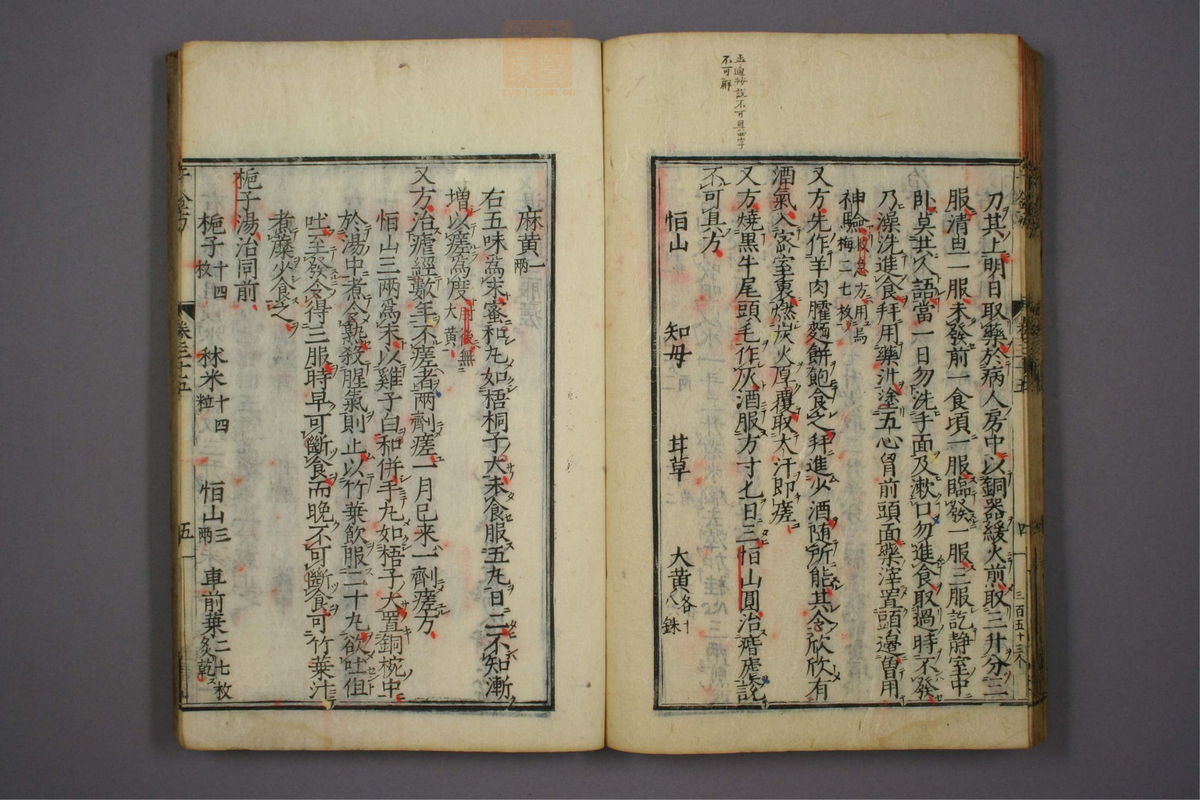 刀其上明日取藥於病人房中以銅器緩火煎取三升分三
服清旦一服未發前一食頃一服臨發一服三服訖静室中
卧莫共人語當一日勿洗手面及漱口勿進食取過時不發
乃澡洗進食并用藥汁塗五心胷前頭面藥滓置頭邊曽用
神驗救急方用烏梅二七枚
又方先作羊肉臛麵餅飽食之并進少酒随所能其令欣欣有
酒氣入密室裏燃炭火厚覆取大汗即瘥
又方燒黒牛尾頭毛作灰酒服方寸匕日三恒山圓治瘧說
不可具方
恒山 知母 甘草 大黄各十八銖
麻黄一兩
右五味爲末蜜和丸如梧桐子大未食服五丸日二不知漸
増以瘥爲度肘後無大黄
又方治瘧經數年不瘥者兩劑瘥一月已来一劑瘥方
恒山三兩爲末以雞子白和併手丸如梧子大置銅椀中
於湯中煮令熟殺腥氣則止以竹葉飲服二十丸欲吐但
吐至發令得三服時早可斷食而晚不可斷食可竹葉汁
煮藥火食之
梔子湯治同前
梔子十四枚 秫米十四粒 恒山三兩 車前葉二七枚炙乾
卷三十五
五
四
三百五十三
不可解